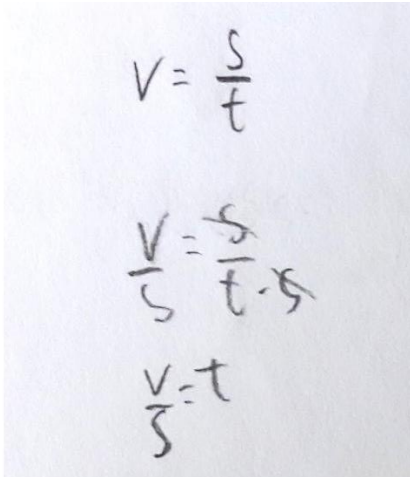 V = s/t
V/s = s/(t·s)
V/s = t